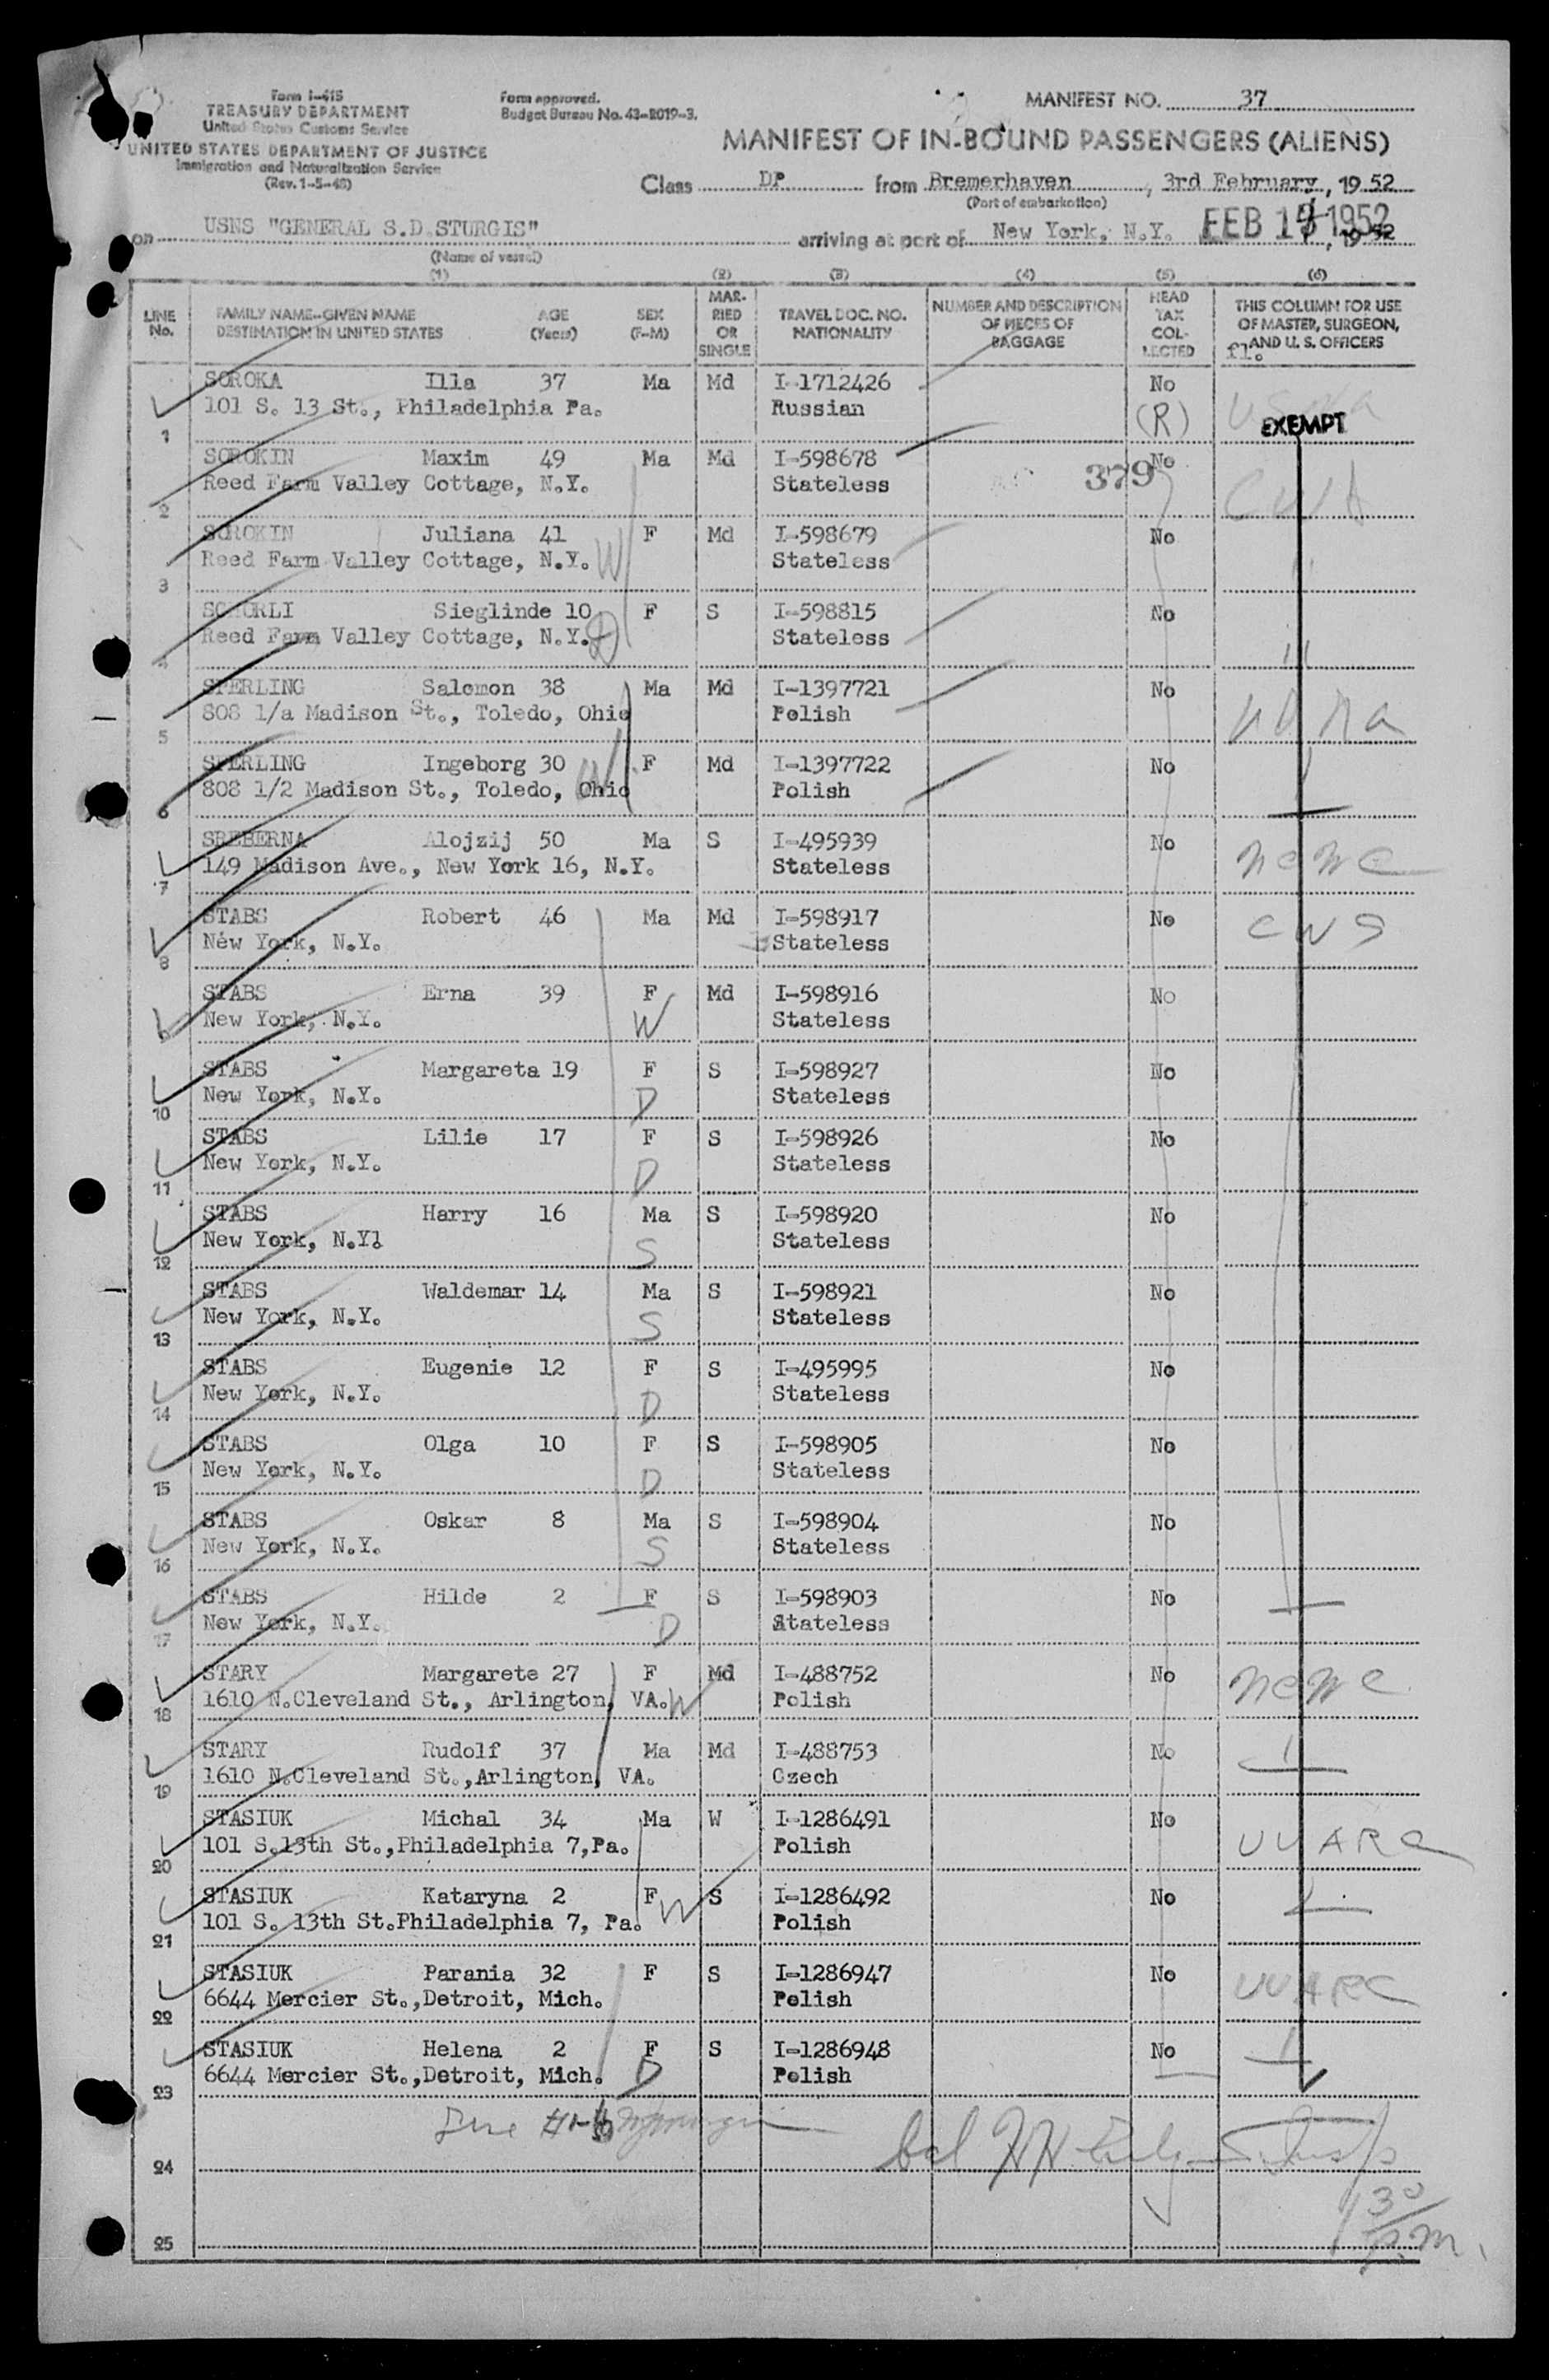 Form I-415
TREASURY DEPARTMENT
United States Customs Service
UNITED STATES DEPARTMENT OF JUSTICE
Immigration and Naturalization Service
(Rev. 1-5-48)
Form approved.
Budget Bureau No. 43-R019-3.
MANIFEST NO. 37
MANIFEST OF IN-BOUND PASSENGERS (ALIENS)
Class DP from Bremerhaven, 3rd February, 1952
(Port of embarkation)
on USNS "GENERAL S.D.STURGIS" arriving at port of New York, N.Y. FEB 1952, 1952
(Name of vessel)
(1) (2) (3) (4) (5) (6)
LINE No. FAMILY NAME-GIVEN NAME DESTINATION IN UNITED STATES AGE (Years) SEX (F-M) MARRIED OR SINGLE TRAVEL DOC. NO. NATIONALITY NUMBER AND DESCRIPTION OF PIECES OF BAGGAGE HEAD TAX COLLECTED THIS COLUMN FOR USE OF MASTER, SURGEON, AND U. S. OFFICERS
fl.
SOROKA Illa 37 Ma Md I-1712426 No
101 S. 13 St., Philadelphia Pa. Russian (R) EXEMPT
1
SOROKIN Maxim 49 Ma Md I-598678 379 No
Reed Farm Valley Cottage, N.Y. Stateless
2
SOROKIN Juliana 41 F Md I-598679 No
Reed Farm Valley Cottage, N.Y. W Stateless
3
Sieglinde 10 F S I-598815 No
Reed Farm Valley Cottage, N.Y. D Stateless
4
SPERLING Salomon 38 Ma Md I-1397721 No
808 1/a Madison St., Toledo, Ohio Polish
5
SPERLING Ingeborg 30 F Md I-1397722 No
808 1/2 Madison St., Toledo, Ohio W Polish
6
SREBERNA Alojzij 50 Ma S I-495939 No
149 Madison Ave., New York 16, N.Y. Stateless
7
STABS Robert 46 Ma Md I-598917 No
New York, N.Y. Stateless CWS
8
STABS Erna 39 F Md I-598916 No
New York, N.Y. W Stateless
9
STABS Margareta 19 F S I-598927 No
New York, N.Y. D Stateless
10
STABS Lilie 17 F S I-598926 No
New York, N.Y. D Stateless
11
STABS Harry 16 Ma S I-598920 No
New York, N.Yl S Stateless
12
STABS Waldemar 14 Ma S I-598921 No
New York, N.Y. S Stateless
13
STABS Eugenie 12 F S I-495995 No
New York, N.Y. D Stateless
14
STABS Olga 10 F S I-598905 No
New York, N.Y. D Stateless
15
STABS Oskar 8 Ma S I-598904 No
New York, N.Y. S Stateless
16
STABS Hilde 2 F S I-598903 No
New York, N.Y. D Stateless
17
STARY Margarete 27 F Md I-488752 No
1610 N.Cleveland St., Arlington, VA. W Polish
18
STARY Rudolf 37 Ma Md I-488753 No
1610 N.Cleveland St.,Arlington, VA. Czech
19
STASIUK Michal 34 Ma W I-1286491 No
101 S.13th St.,Philadelphia 7,Pa. Polish
20
STASIUK Kataryna 2 F S I-1286492 No
101 S. 13th St.Philadelphia 7, Pa. W Polish
21
STASIUK Parania 32 F S I-1286947 No
6644 Mercier St.,Detroit, Mich. Polish
22
STASIUK Helena 2 F S I-1286948 No
6644 Mercier St.,Detroit, Mich. D Polish
23
24
1 30
p.m.
25